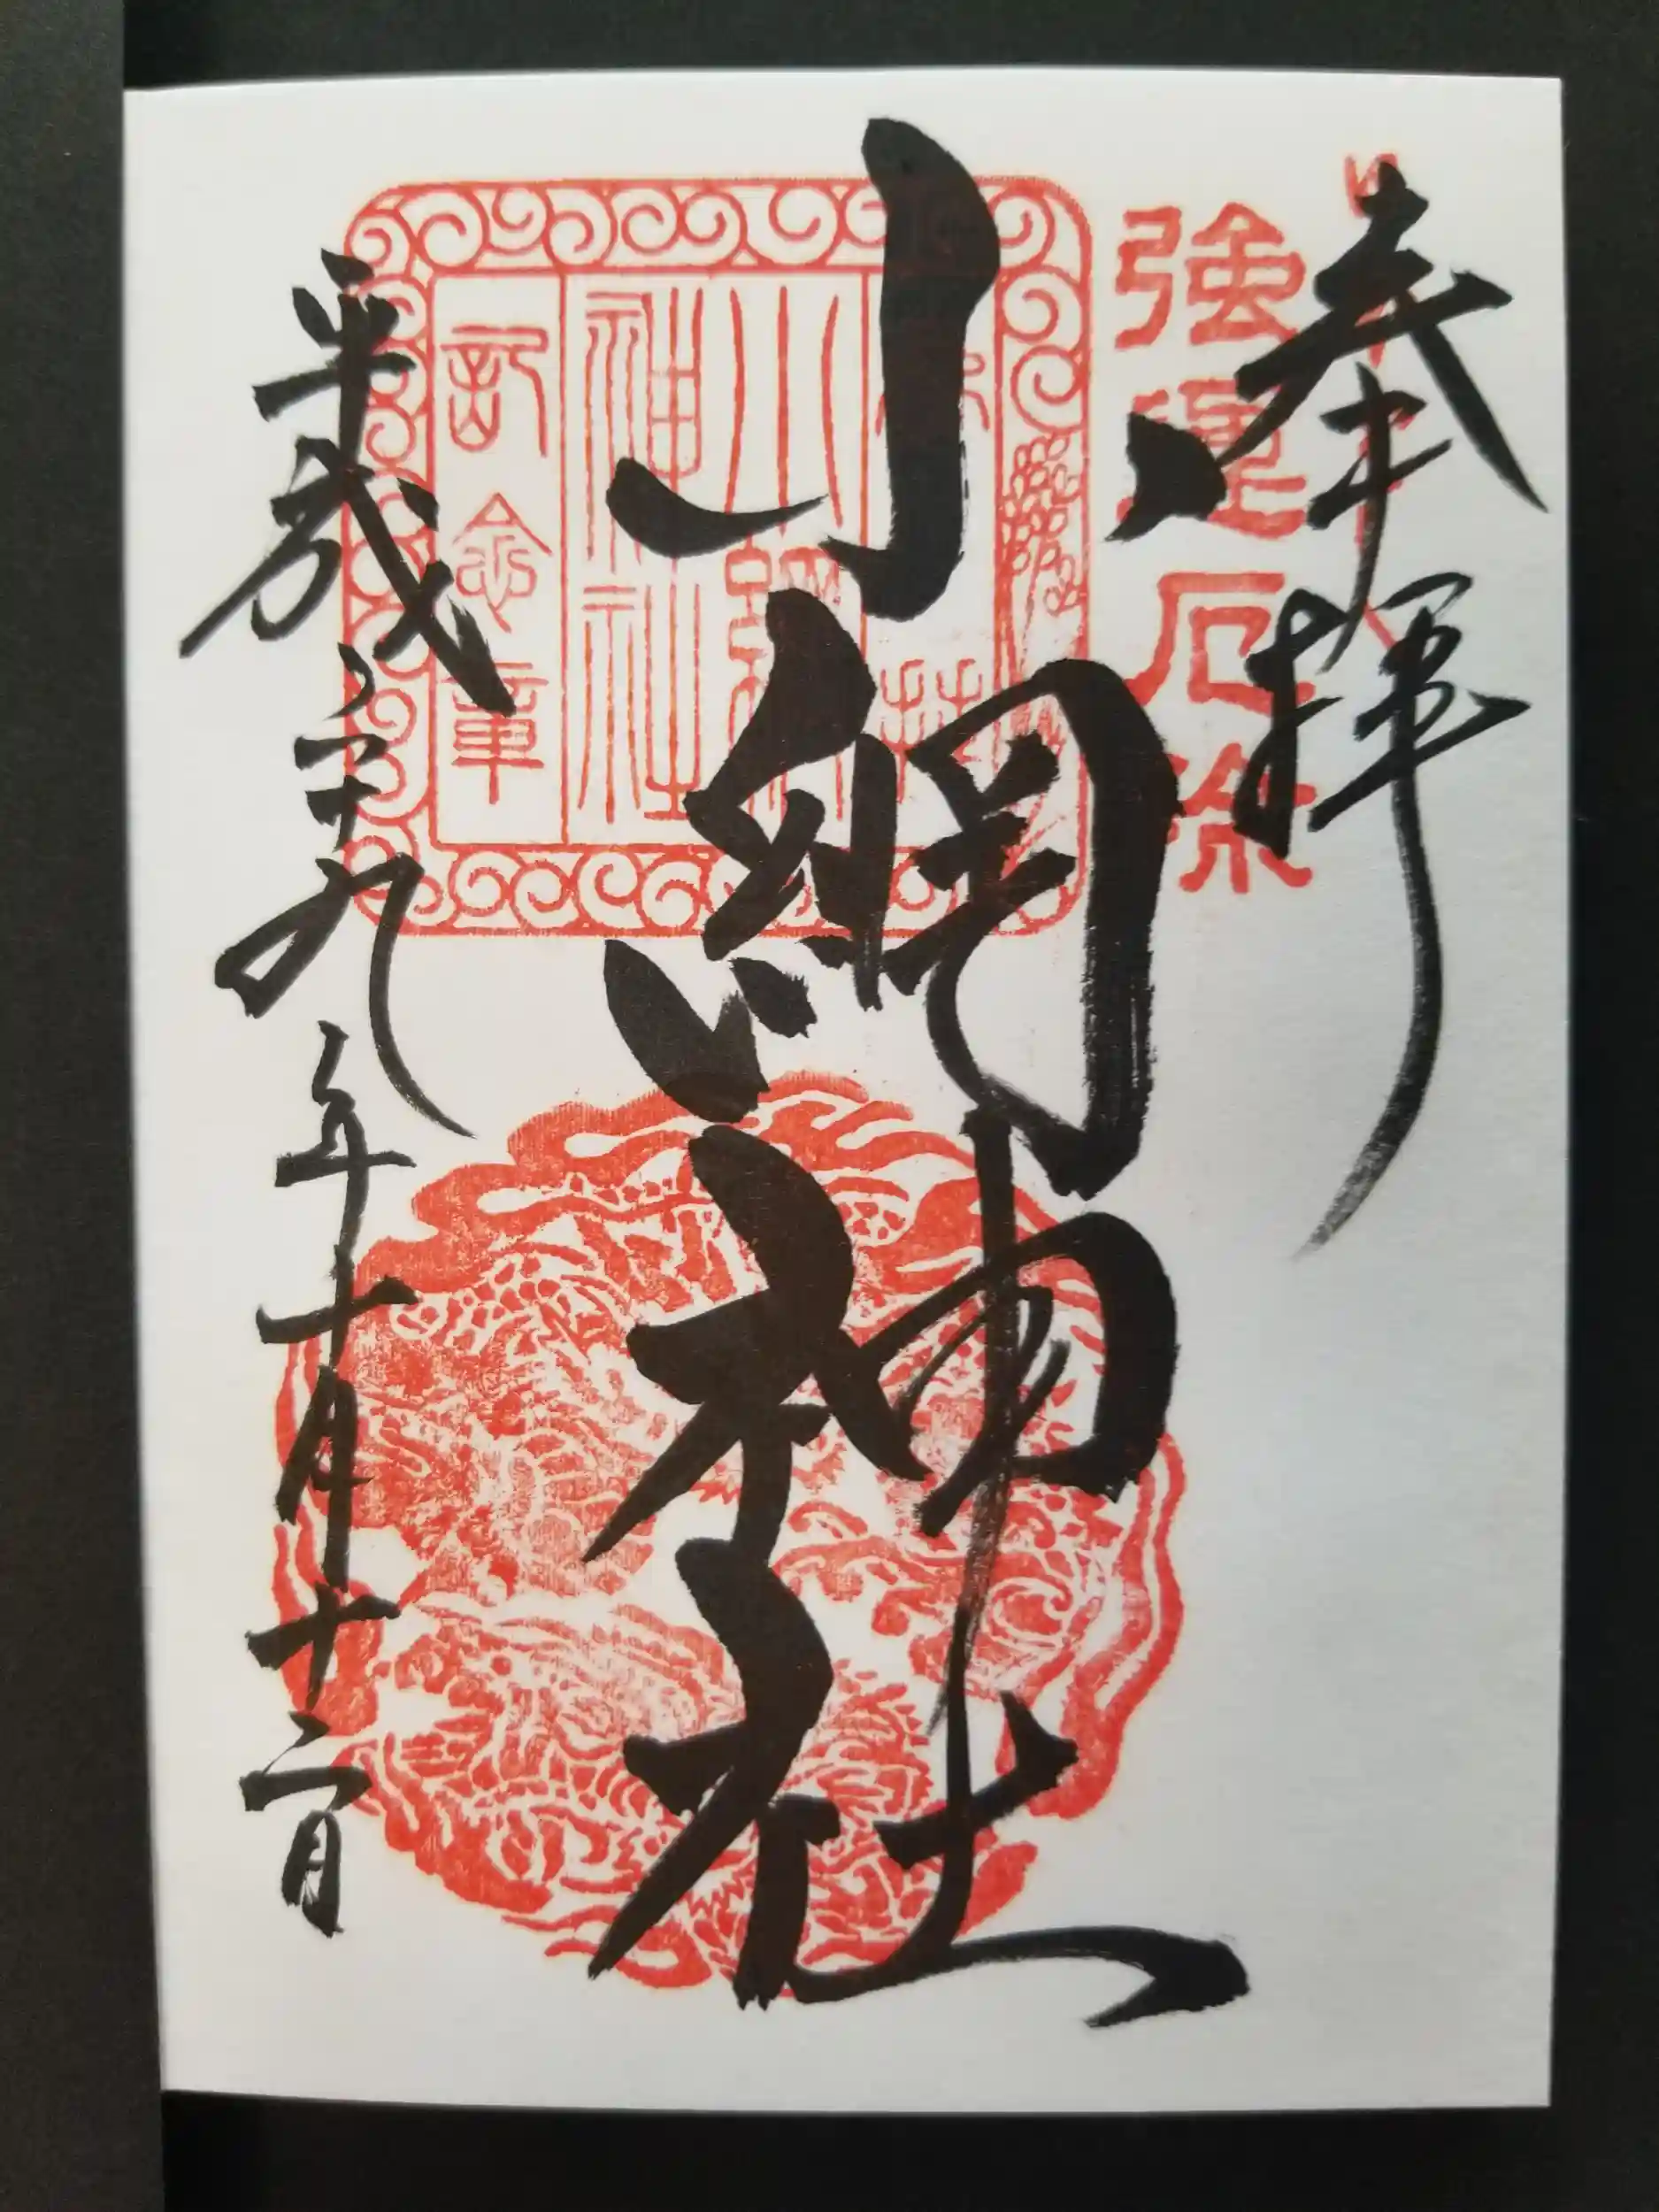 奉拝
強運厄除
小網神社
小網神社
記念章
平成二十九年十月十二日